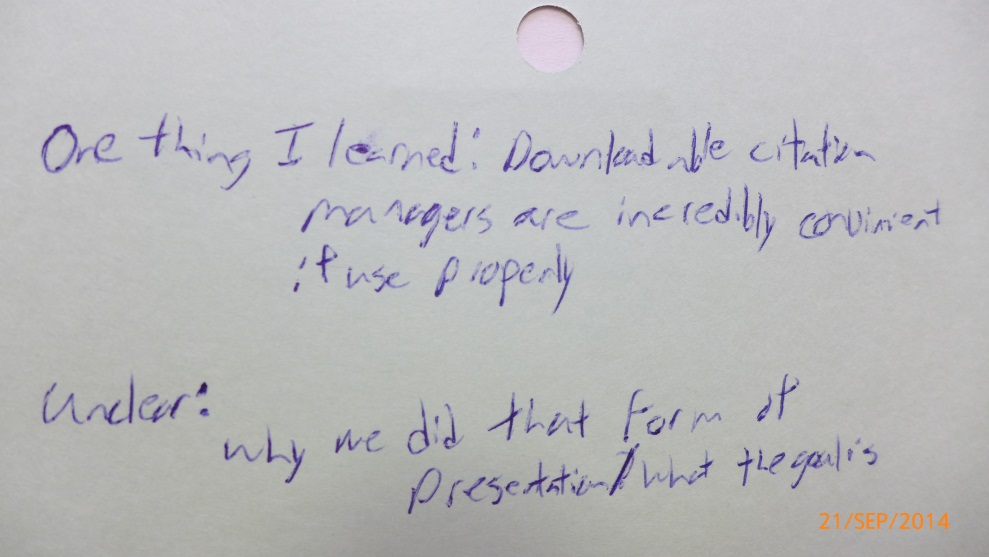 One thing I learned: Downloadable citation
managers are incredibly convinient
if use properly
Unclear:
why we did that form of
presentation/what the goal is
21/SEP/2014